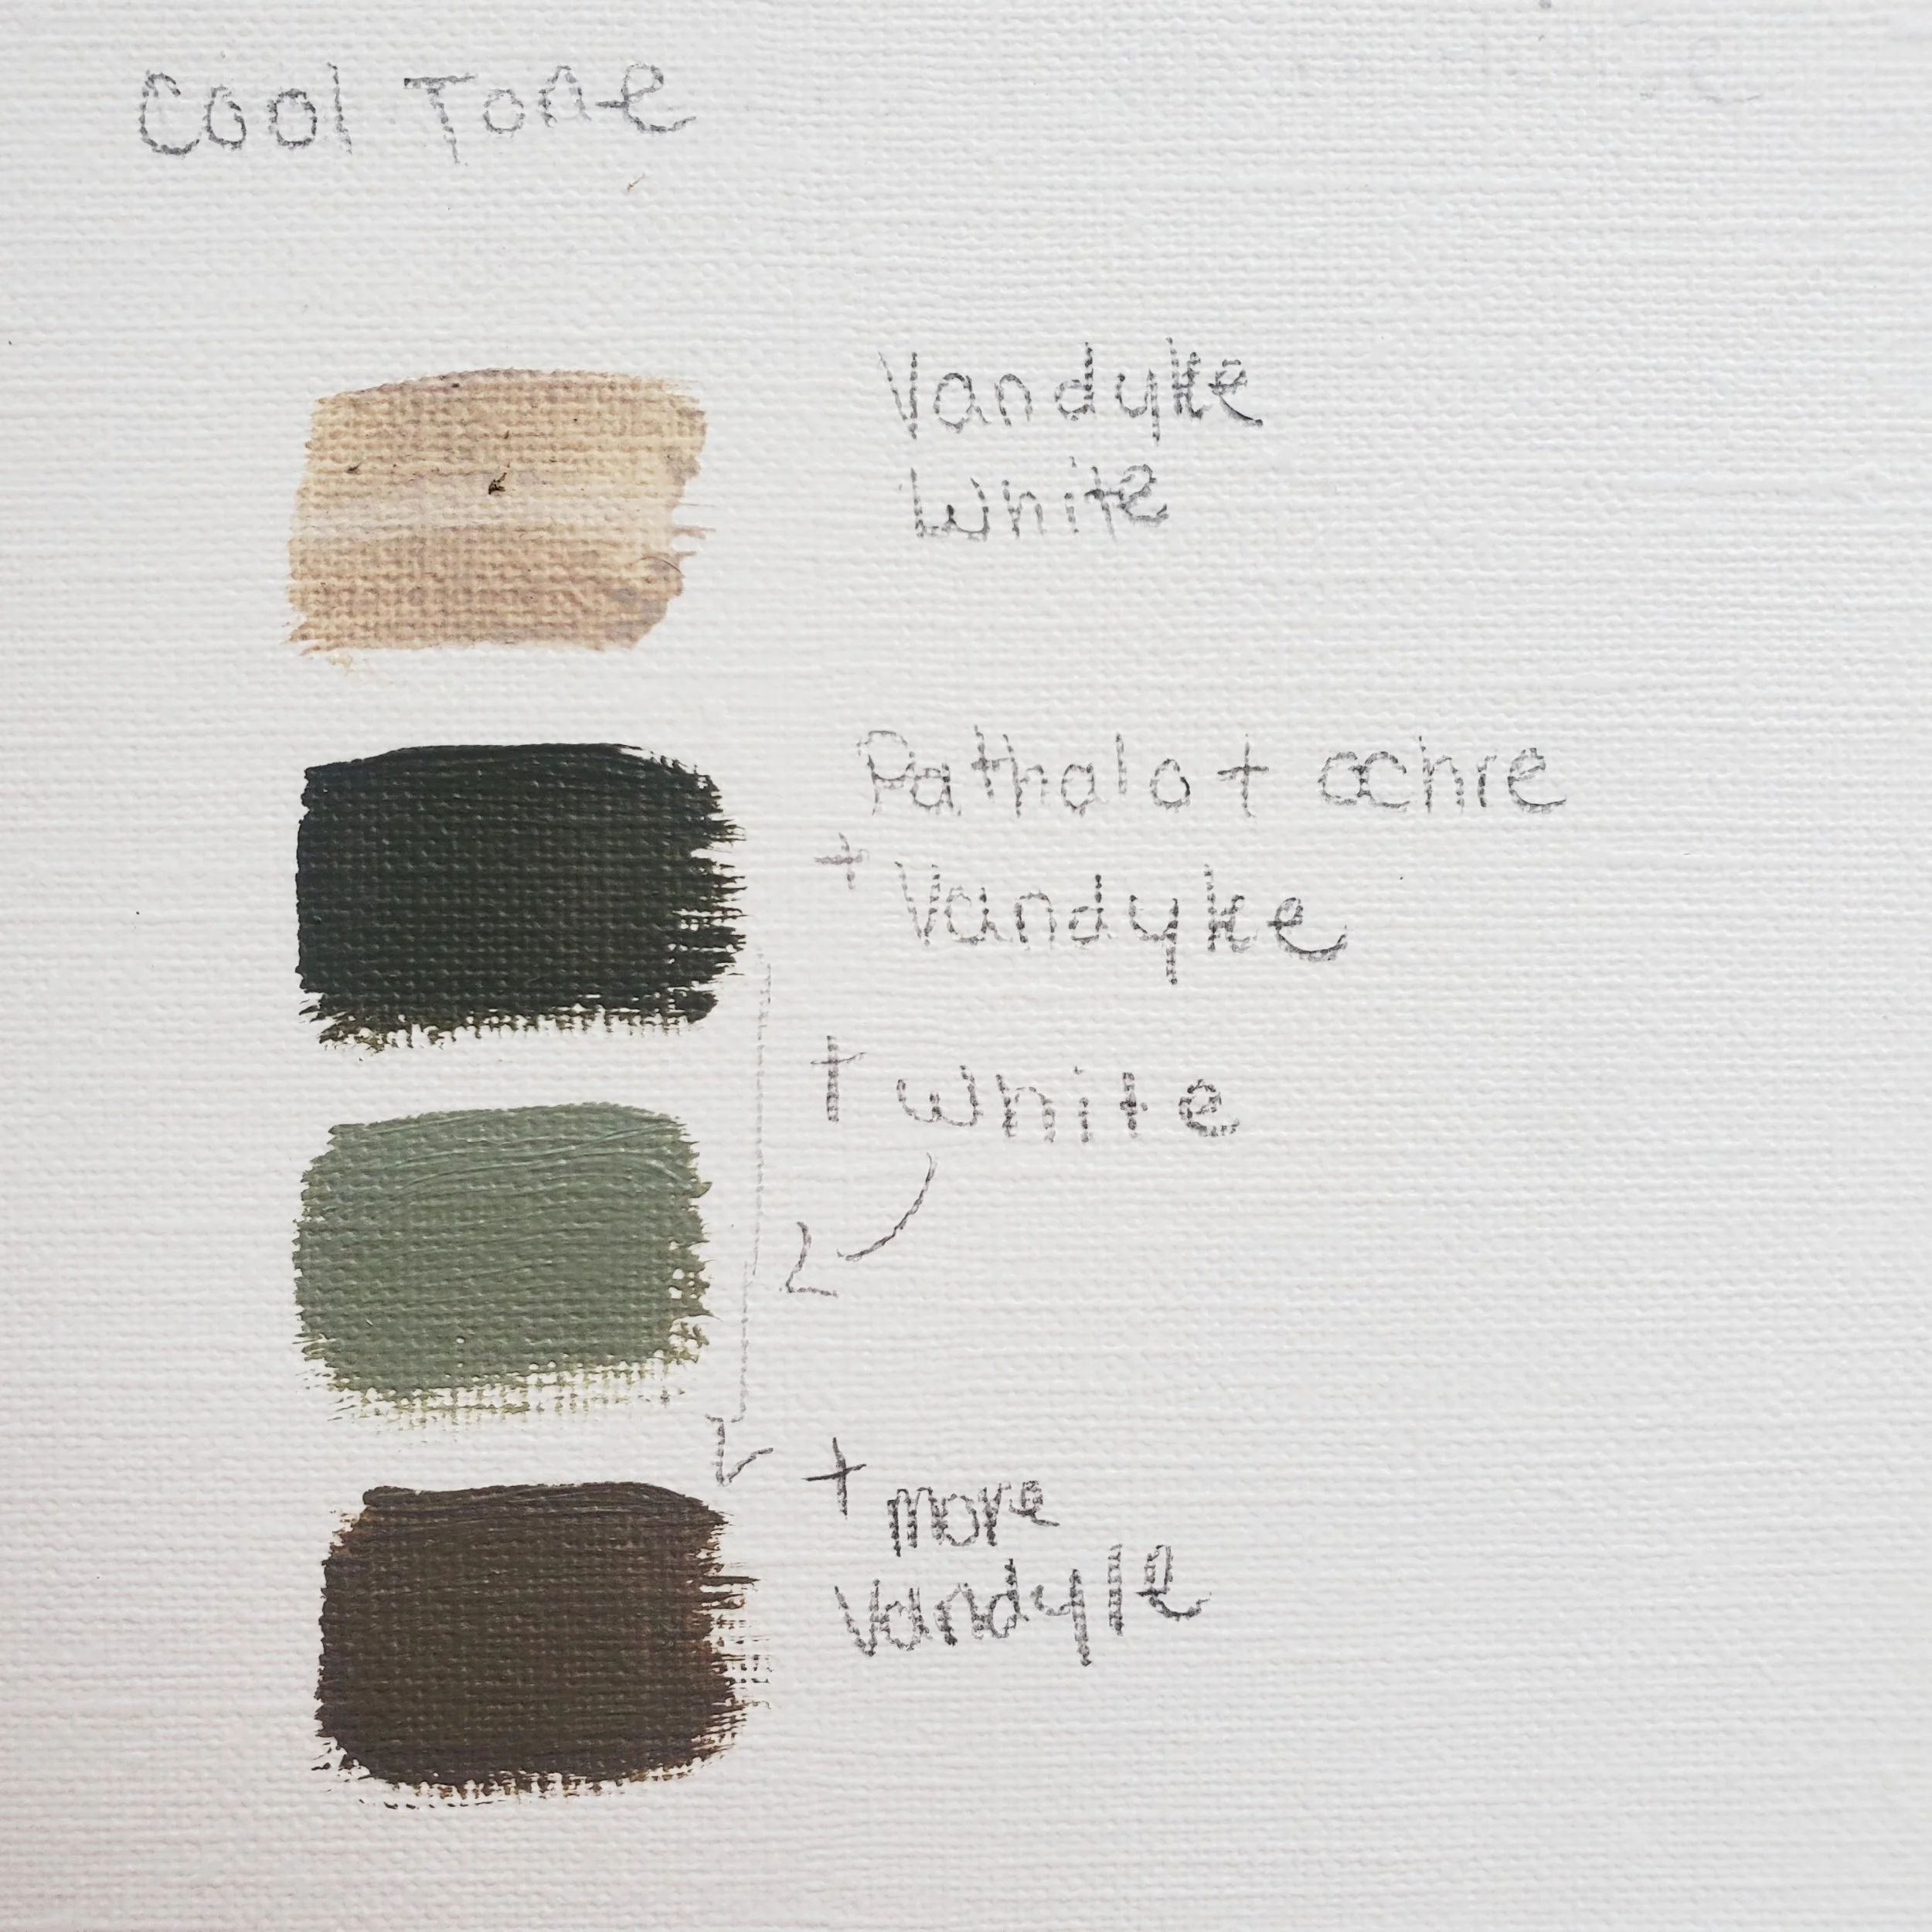 Cool Tone
Vandyke
White
Pathalo + ochre
+ Vandyke
+ white
+ more
Vandyke